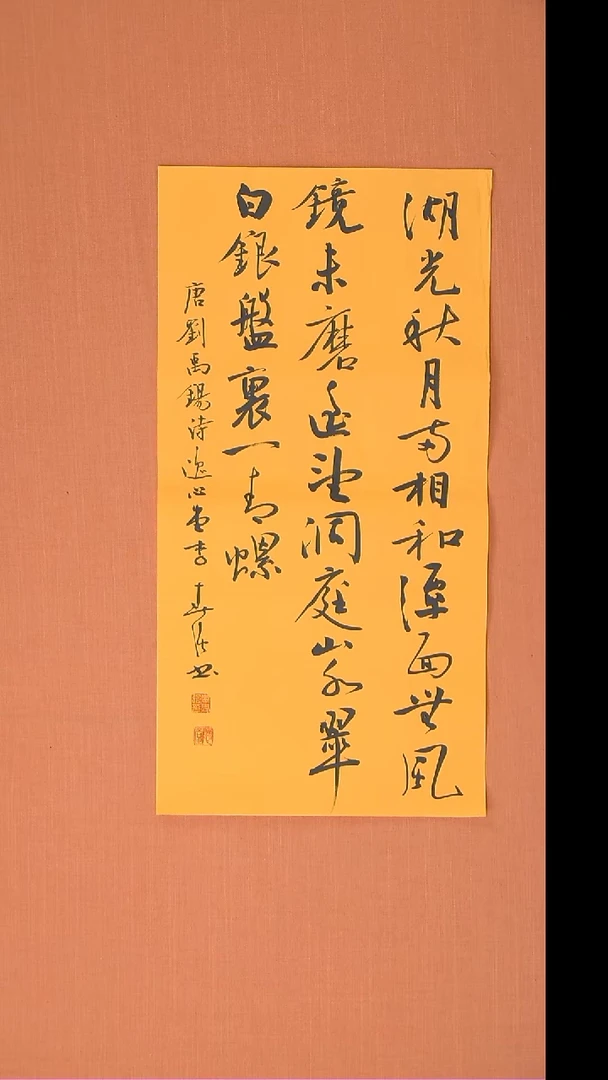 湖光秋月兩相和潭面無風
鏡未磨遙望洞庭山水翠
白銀盤裏一青螺
唐劉禹錫詩逸心堂李春书